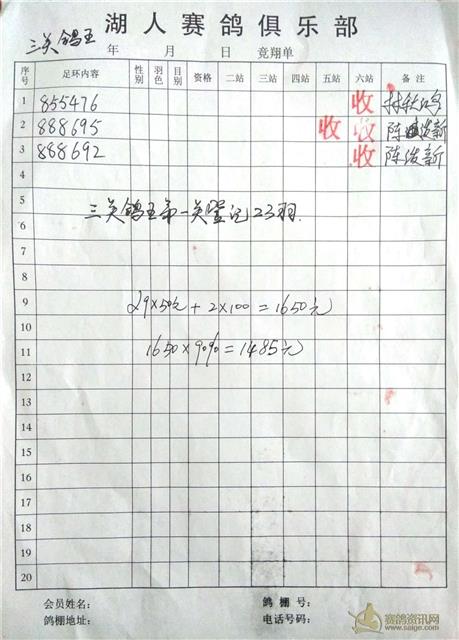 湖人赛鸽俱乐部
三关鸽王 年 月 日 竞翔单
序号 足环内容 性别 羽色 目别 资格 二站 三站 四站 五站 六站 备注
1 855476 收
2 888695 收 收 陈浚新
3 888692 收 陈浚新
4
5
三关鸽王第一关登记23羽.
6
7
8
9 29×50元+2×100=1650元
10
11 1650×90%=1485元
12
13
14
15
16
17
18
19
20
会员姓名: 鸽棚号:
鸽棚地址: 电话号码:
赛鸽资讯网
www.saige.com